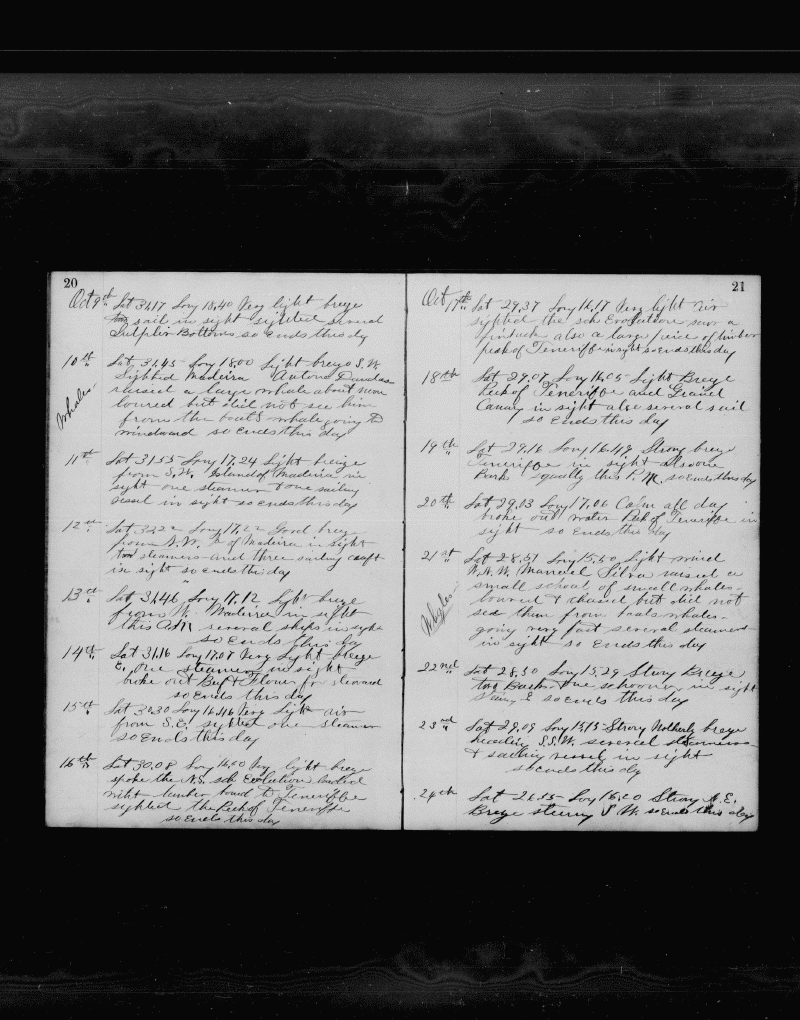 20
Oct 9th Lat 31,17 Long 18,40 Very light breze
sail in sight sighted several
Sulpher Bottoms so Ends this dy
10th Lat 31,45 Long 18.00 Light breze S.W.
Sighted Madeira Antone
raised a large whale about noon
lowred but did not see him
from the boats whale going to
windward so ends this day
Whales
11th Lat 31.53 Long 17.24 Light breize
from S.W. Island of Madeira in
sight one steamer & one sailing
vessel in sight so ends this day
12th Lat Long Good brez
from N.W. of Madeira in sight
two steamers and three sailing craft
in sight so ends this day
13th Lat 31,46 Long 17,12 light breze
from W. Madeira in sight
this AM several ships in sight
so Ends this day
14th Lat 31,16 Long 17.07 Very Light breeze
E, one steamer in sight
broke out Beef & Flower for steward
so Ends this day
15th Lat Long 16,46 Very Light air
from S.E. sighted one steamer
so Ends this day
16th Lat 30.08 Long Very light breze
spoke the N.S. sch Evolution loaded
with lumber bound to Teneriffe
sighted the Peak of Teneriffe
so Ends this day
21
Oct 17th Lat 29,37 Long 16,17 Very light air
sighted the sch Evolution saw a
finback also a large piece of timber
peak of Teneriffe in sight so ends this day
18th Lat 29,07 Long 16,05 Light Breze
Peak of Teneriffe and Grand
Canary in sight also several sail
so Ends this day
19th Lat 29,16 Long 16.49 Strong brez
Teneriffe in sight also one
Bark squally this P.M. so ends this day
20th Lat, 29,03 Long 17,06 Calm all day
broke out water Peak of Teneriffe in
sight so Ends this day
21st Lat 28,51 Long 15,50 Light wind
Manuel Silva raised a
small school of small whales
lowred & chased but did not
see them from boats whales
going very fast several steamers
in sight so ends this day
Whales
22nd Lat 28,30 Long 15,29 Strong Breeze
two Barks one schooner in sight
so ends this day
23rd Lat 29,09 Long 15,15 Strong Notherly breze
heading S.S.W. several steamers
& sailing vessel in sight
so ends this dy
24th Lat Long Strong N.E.
Breze stering S W. so Ends this day